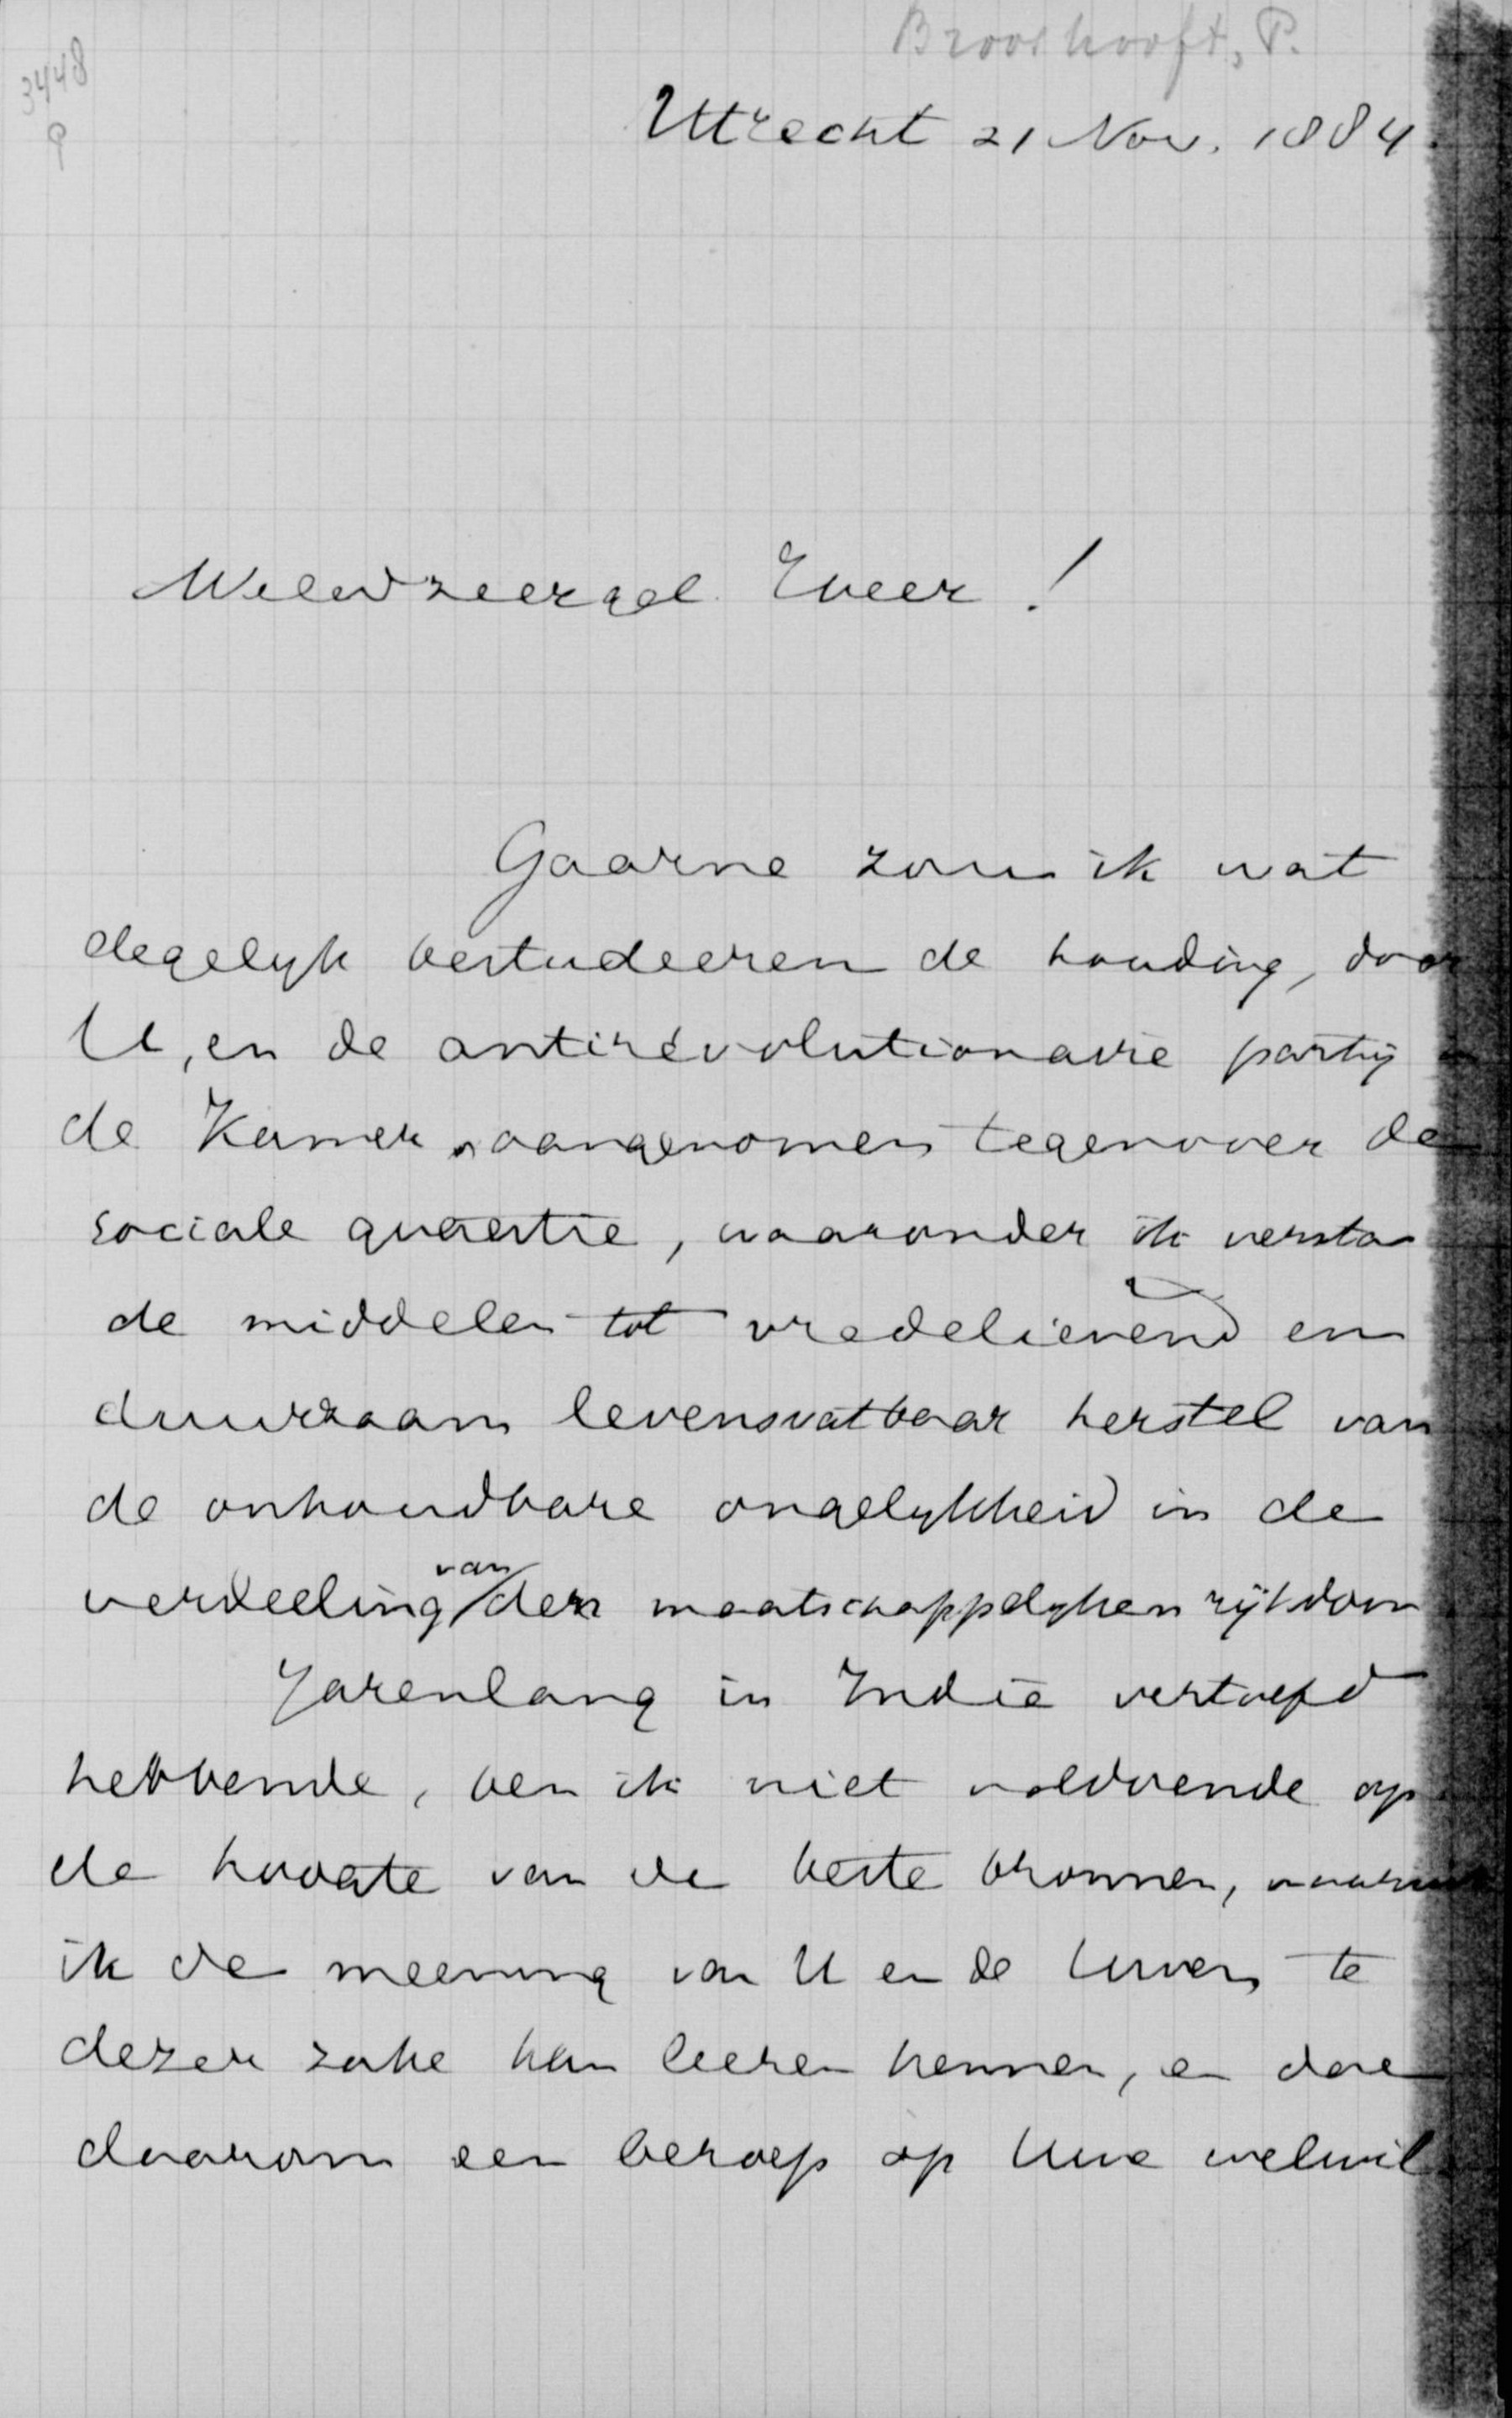 Brooshooft, P.
3448
P
Utrecht 21 Nov. 1884.
Weledzeergel. Heer!
Gaarne zou ik wat
degelyk bestudeeren de houding, door
U, en de antirevolutionaire partij in
de Kamer, aangenomen tegenover de
sociale quaestie, waaronder ik versta
de middelen tot vredelievend en
duurzaam levensvatbaar herstel van
de onhoudbare ongelykheid in de
verdeeling van den maatschappelyken rijkdom
Jarenlang in Indië vertoefd
hebbende, ben ik niet voldoende op
de hoogte van de beste bronnen, waaruit
ik de meening van U en de Uwen te
dezer zake kan leeren kennen, en doe
daarom een beroep op Uwe welwil-